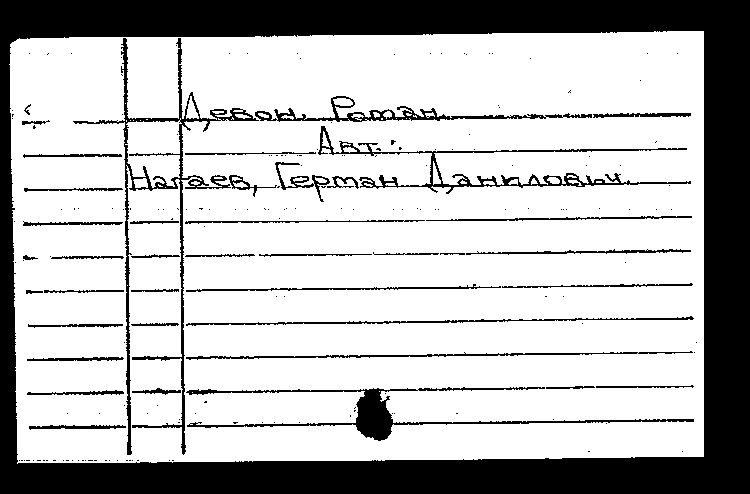 Девон. Роман.
Авт.:
Нагаев, Герман Данилович.